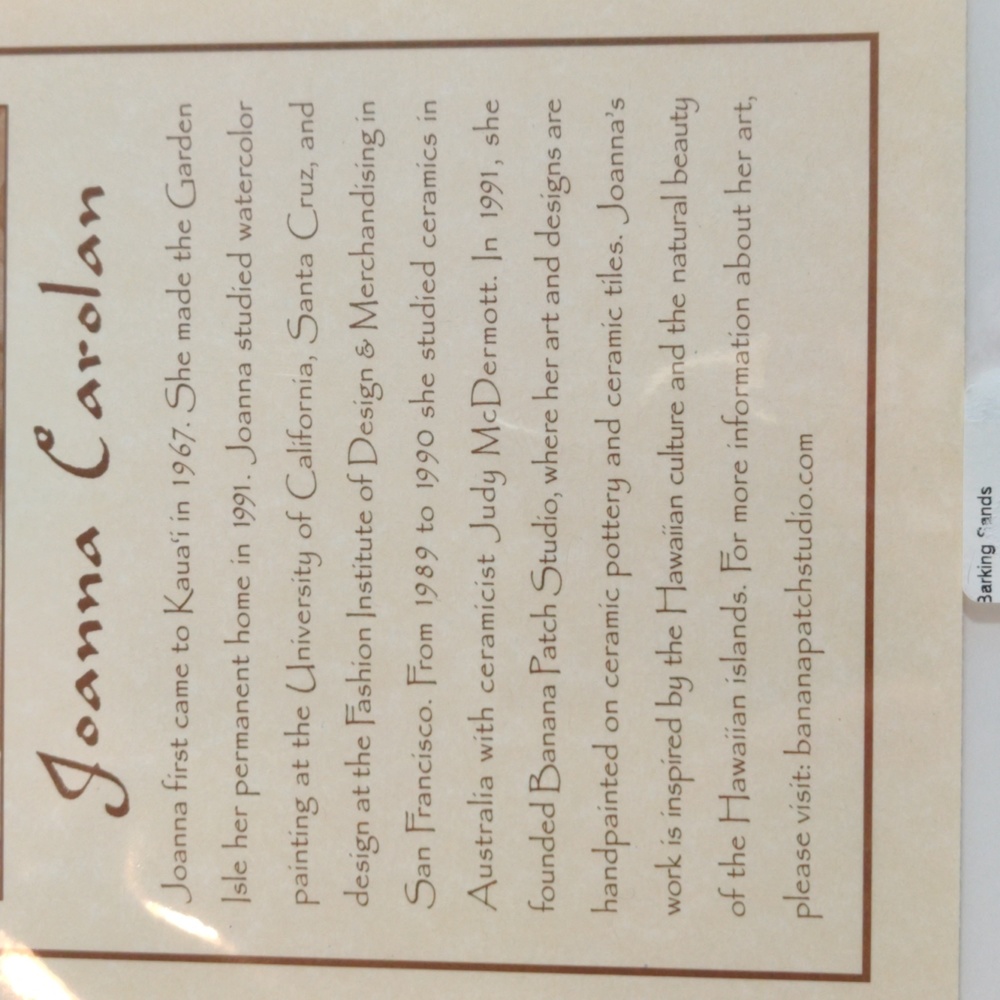 Joanna Carolan
Joanna first came to Kaua‘i in 1967. She made the Garden
Isle her permanent home in 1991. Joanna studied watercolor
painting at the University of California, Santa Cruz, and
design at the Fashion Institute of Design & Merchandising in
San Francisco. From 1989 to 1990 she studied ceramics in
Australia with ceramicist Judy McDermott. In 1991, she
founded Banana Patch Studio, where her art and designs are
handpainted on ceramic pottery and ceramic tiles. Joanna's
work is inspired by the Hawaiian culture and the natural beauty
of the Hawaiian islands. For more information about her art,
please visit: bananapatchstudio.com
Barking Sands